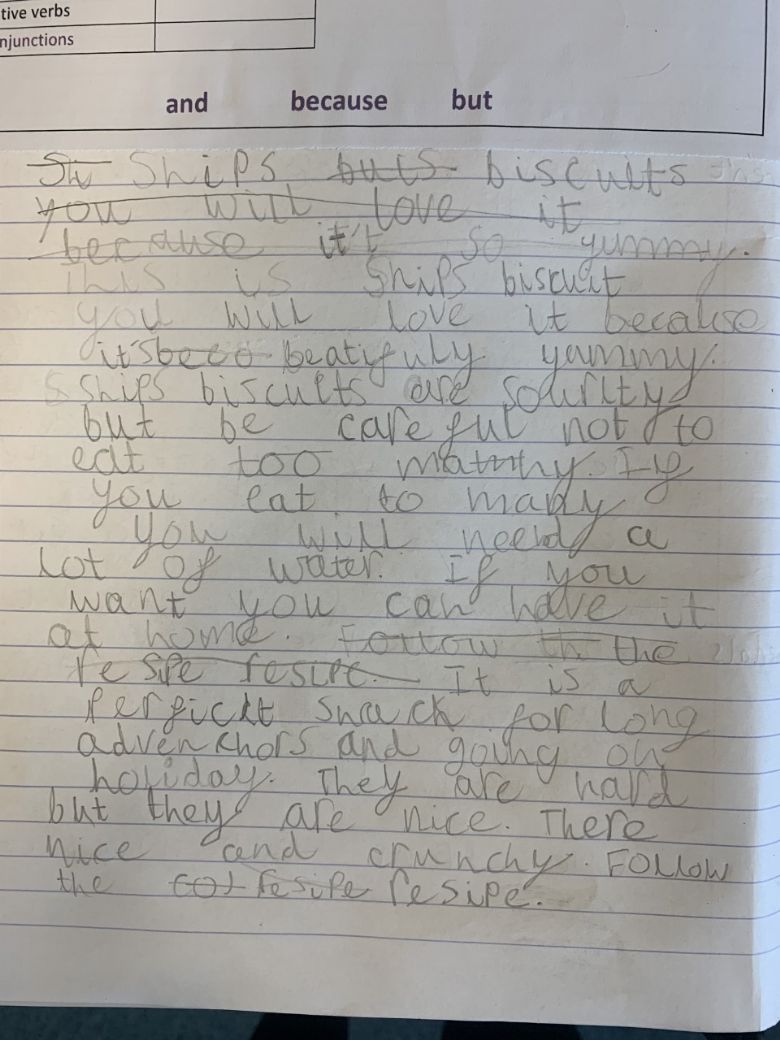 tive verbs
njunctions
and because but
Sh Ships buts biscuits
you will love it
because it't so yummy.
This is Ships biscuit
you will love it because
it's beco beatifuly yummy.
Ships biscuits are
but be careful not to
eat too many. If
you eat to many
you will need a
lot of water. If you
want you can have it
at home. Follow th the
resipe resipe. It is a
perfickt snack for long
advenchors and going on
holiday. They are hard
but they are nice. There
nice and crunchy. Follow
the resipe resipe.